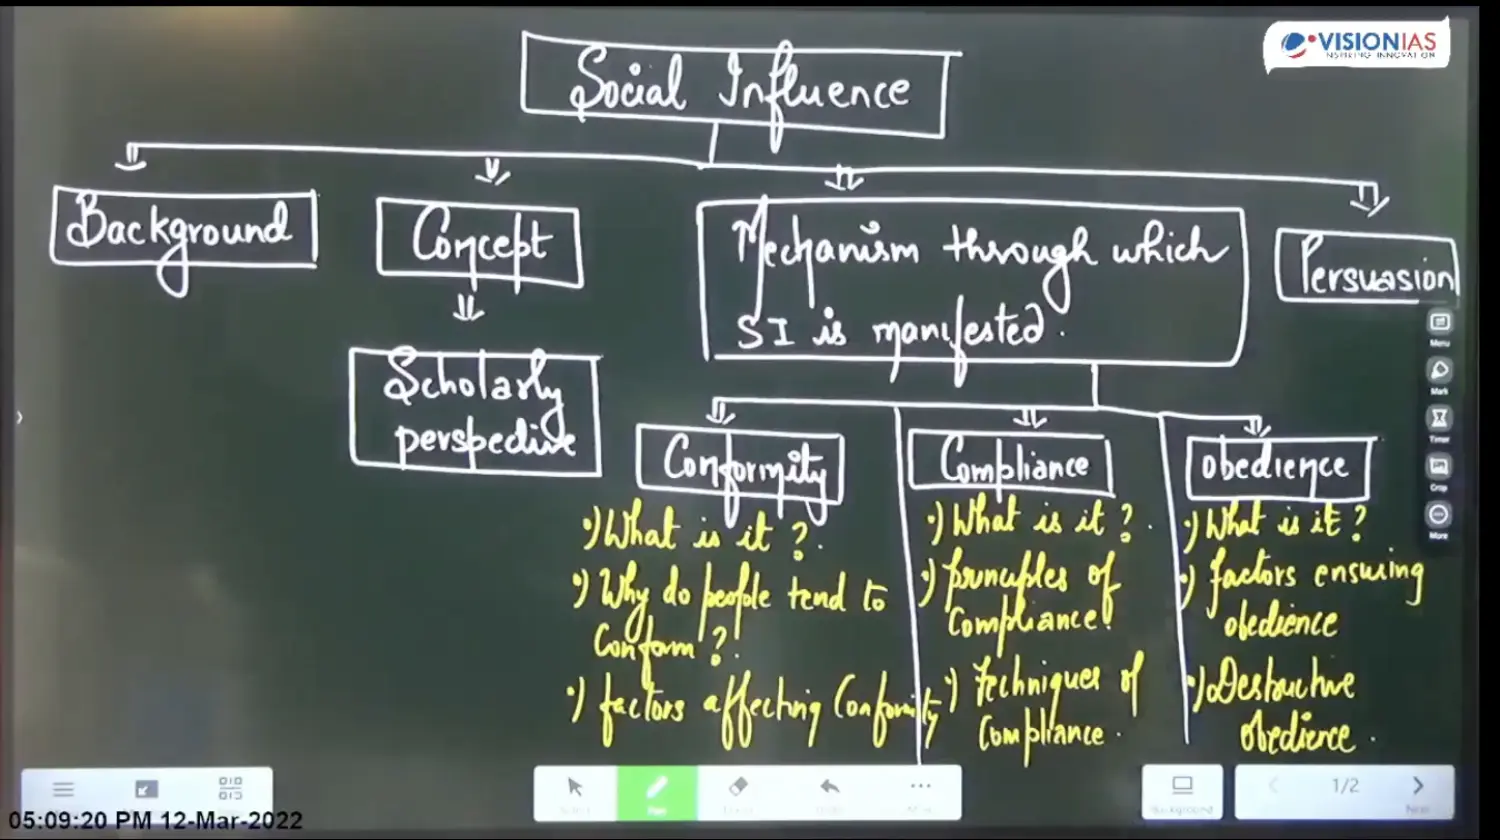 VISIONIAS
INSPIRING INNOVATION
Social Influence
Background
Concept
Mechanism through which
SI is manifested.
Persuasion
Scholarly
perspective
Conformity
Compliance
Obedience
•) What is it?
•) Why do people tend to
Conform?
•) factors affecting Conformity
•) What is it?
•) principles of
Compliance.
•) Techniques of
Compliance.
•) What is it?
•) factors ensuring
obedience
•) Destructive
obedience.
Menu
Mark
Timer
Crop
More
Select
Pen
Background
1/2
Next
05:09:20 PM 12-Mar-2022